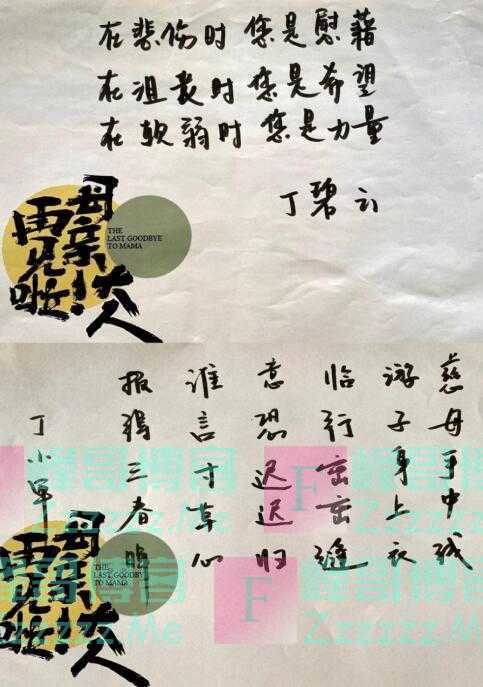 在悲伤时 您是慰藉
在沮丧时 您是希望
在软弱时 您是力量
丁碧云
母亲大人
再见啦!
THE
LAST GOODBYE
TO MAMA
慈母手中线
游子身上衣
临行密密缝
意恐迟迟归
谁言寸草心
报得三春晖
丁小军
母亲大人
再见啦!
THE
LAST GOODBYE
TO MAMA
峰哥博客
Zzzzzz.Me
F
峰哥博客
Zzzzzz.Me
峰哥博客
Zzzzzz.Me
F
峰哥博客
Zzzzzz.Me